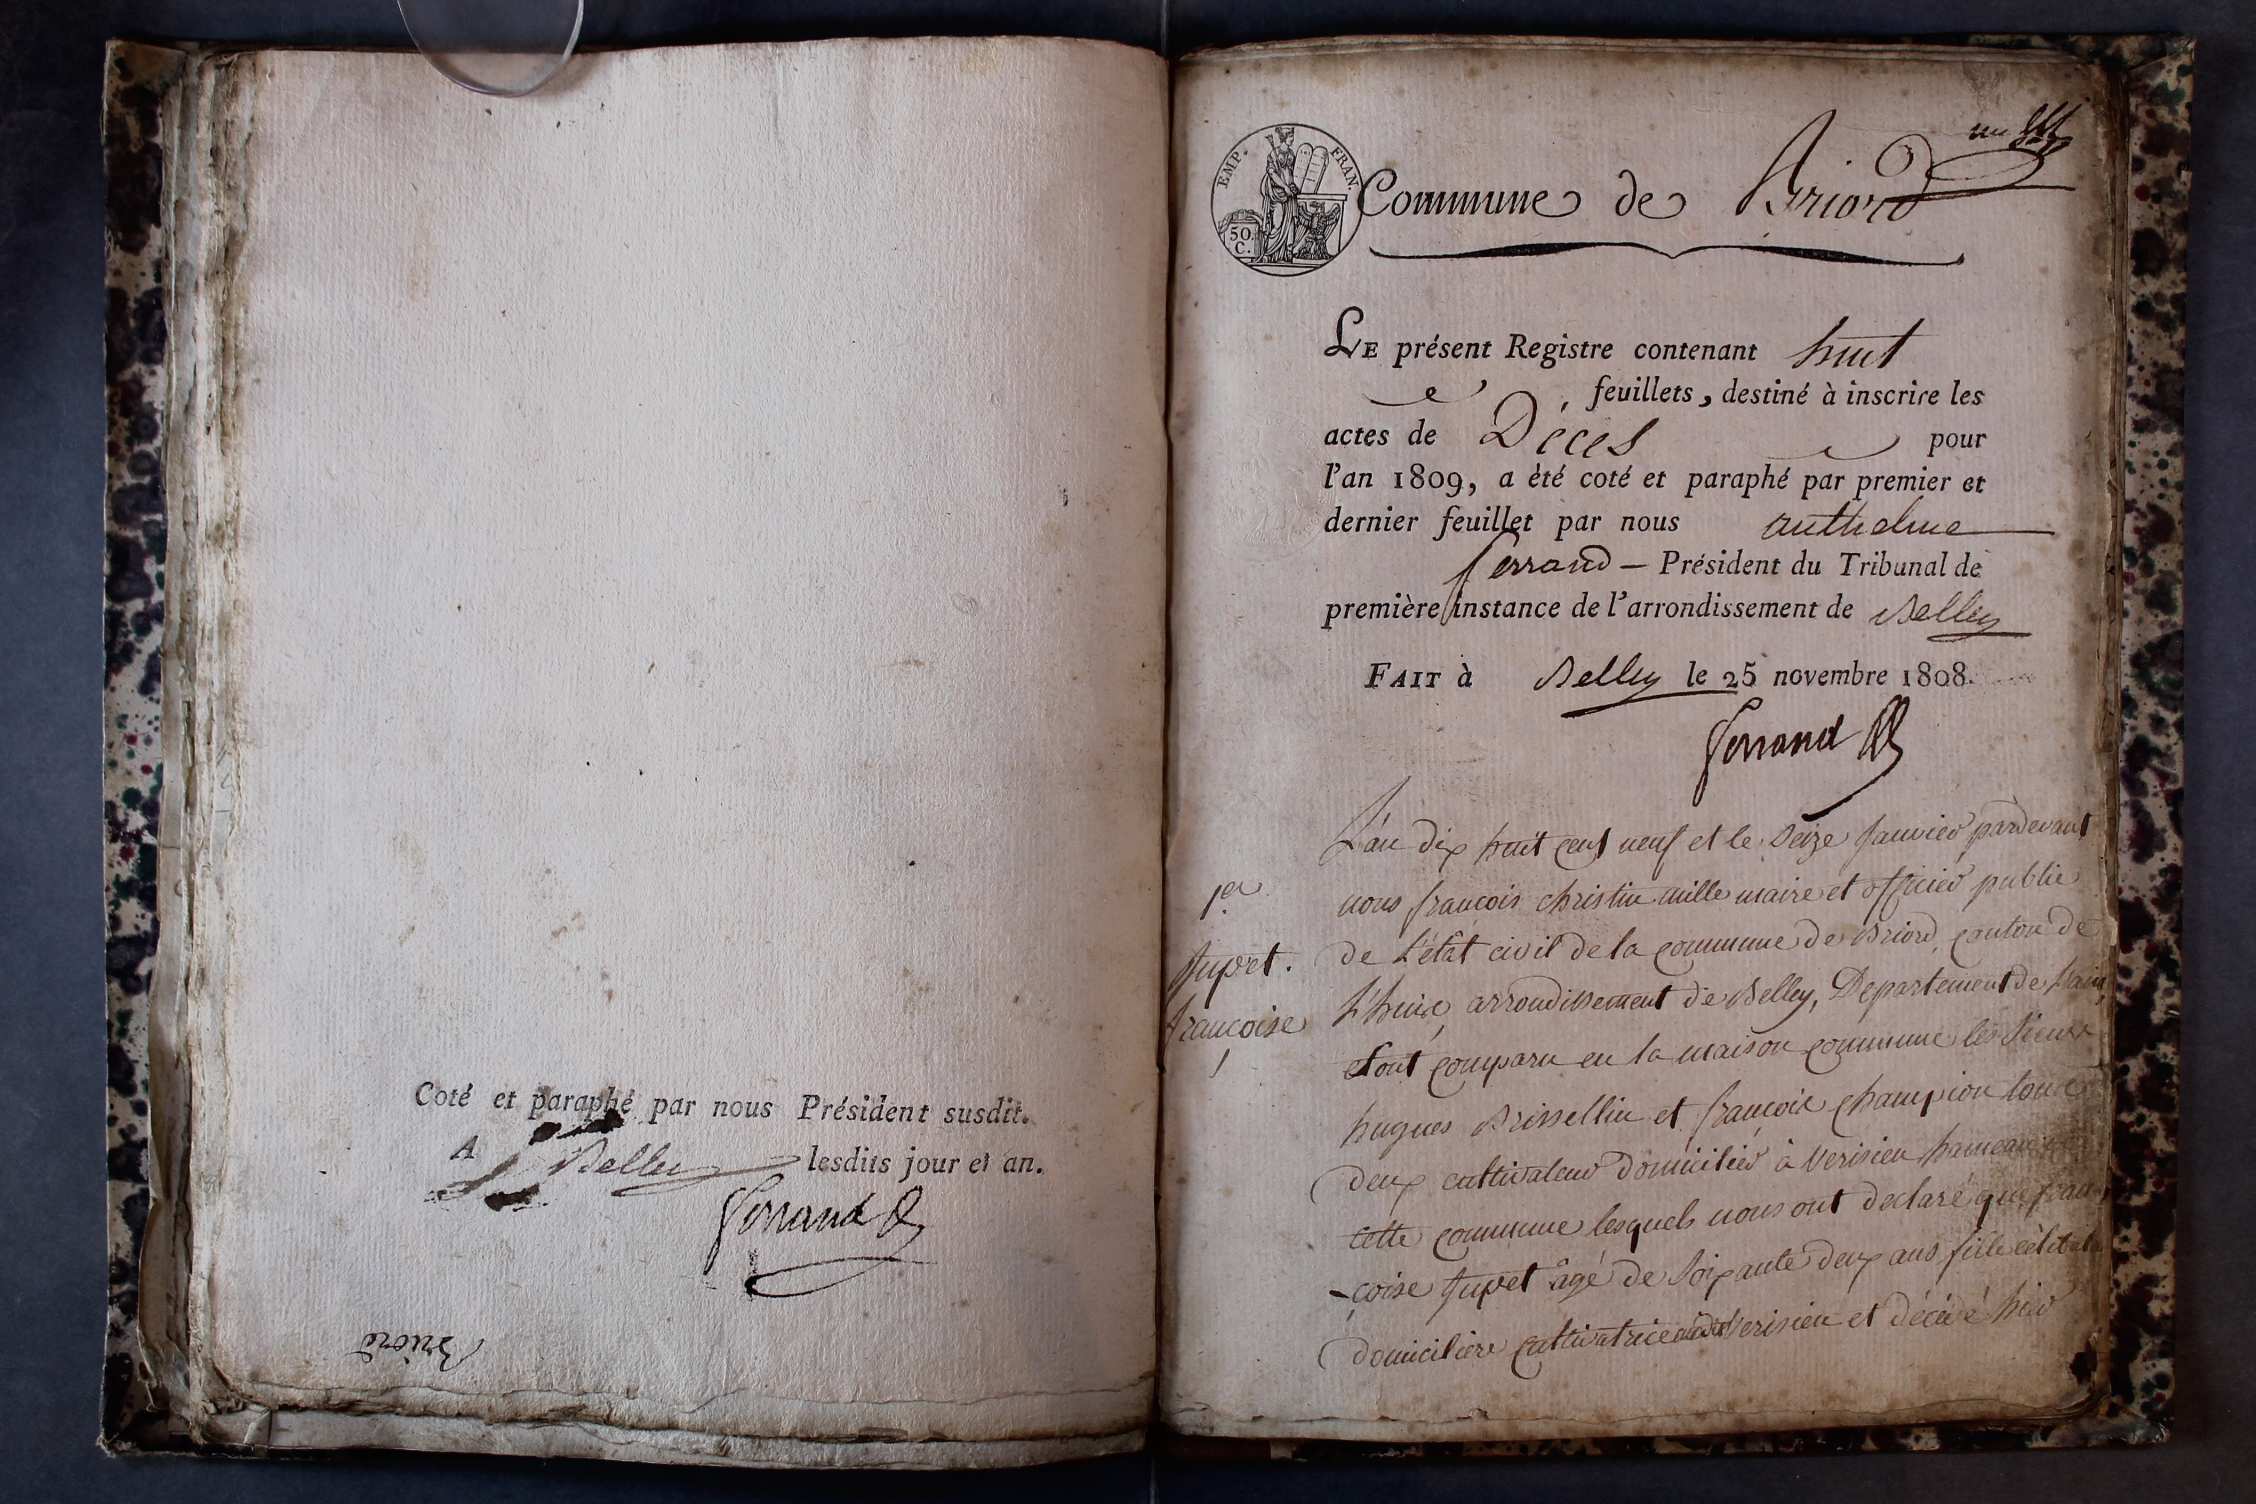 Coté et paraphé par nous Président susdit.
A Belley lesdits jour et an.
Ferrand
Briord
un
EMP. FRAN.
50 C.
Commune de Briord
LE présent Registre contenant huit
feuillets, destiné à inscrire les
actes de Décès pour
l'an 1809, a été coté et paraphé par premier et
dernier feuillet par nous anthelme
ferrand — Président du Tribunal de
première instance de l'arrondissement de Belley
FAIT à Belley le 25 novembre 1808.
Ferrand
1er
Juvet.
françoise
L'an dix huit cent neuf et le seize Janvier pardevant
nous françois christin mille maire et officier public
de L'état civil de la commune de Briord, canton de
L'huix, arrondissement de Belley, Departement de L'ain,
et ont comparu en la maison commune les Sieurs
hugues Brissellin et françois champion tous
deux cultivateur domiciliés à Verisieu hameau
cette commune lesquels nous ont declaré que fran-
-çoise Juvet âgé de Soixante deux ans fille célibat
domiciliere cultivatrice audit Verisieu et décédé hier